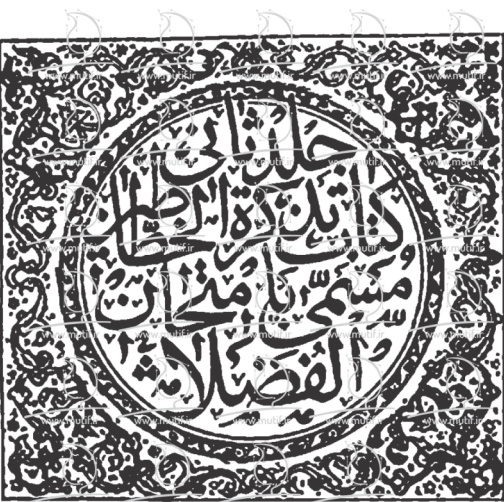 جلد ثانی
کتاب تذکرة الخطاطین
مسمّی بامتحان
الفُضَلاء
www.mutif.ir